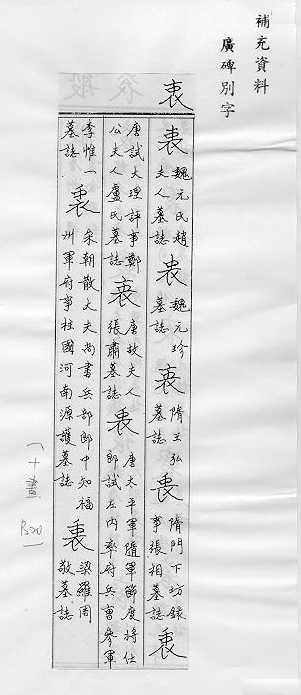 補充資料
廣碑別字
衷
衷 魏元氏趙夫人墓誌 衷 魏元珍墓誌 衷 隋王弘墓誌 衷 隋門下坊錄事張相墓誌 衷
唐試大理評事鄭公夫人盧氏墓誌 衷 唐故夫人張肅墓誌 衷 唐太平軍隨軍節度將仕郎試左內率府兵曹參軍
李惟一墓誌 衷 宋朝散大夫尚書兵部郎中知福州軍府事柱國河南源護墓誌 衷 梁羅周敬墓誌
十畫